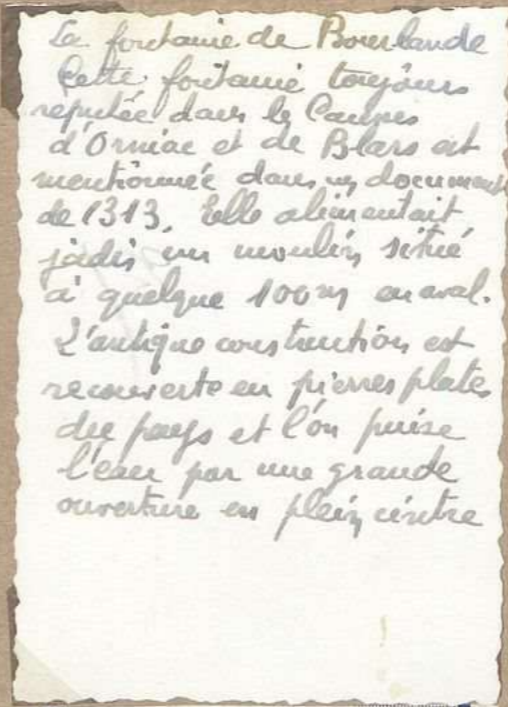 La fontaine de Bourlande
Cette fontaine toujours
reputée dans le Causses
d'Orniac et de Blars est
mentionnée dans un document
de 1313. Elle alimentait
jadis un moulin situé
à quelque 100m en aval.
L'antique construction est
recouverte en pierres plates
du pays et l'on puise
l'eau par une grande
ouverture en plein cintre